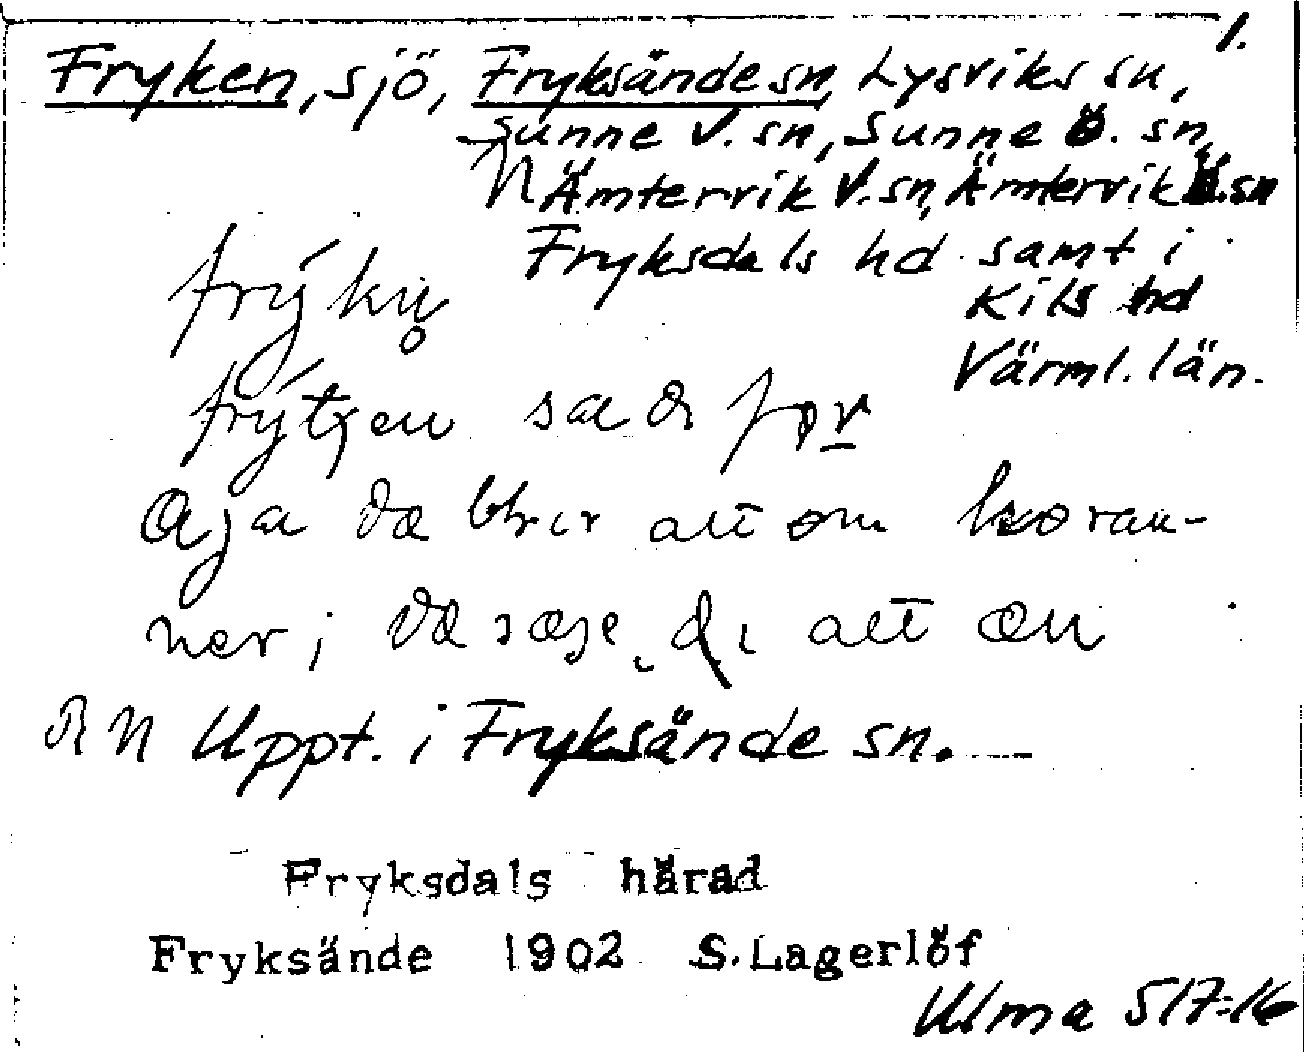 1.
Fryken, sjö, Fryksände sn, Lysviks sn,
Sunne V. sn, Sunne Ö. sn,
N Ämtervik V. sn, Ämtervik Ö. sn
Fryksdals hd samt i
Kils hd
Värml. län.
frýkn̥
frýtjen sa di för
att om
att
R N Uppt. i Fryksände sn.
Fryksdals härad
Fryksände 1902 S. Lagerlöf
Ulma 517:16